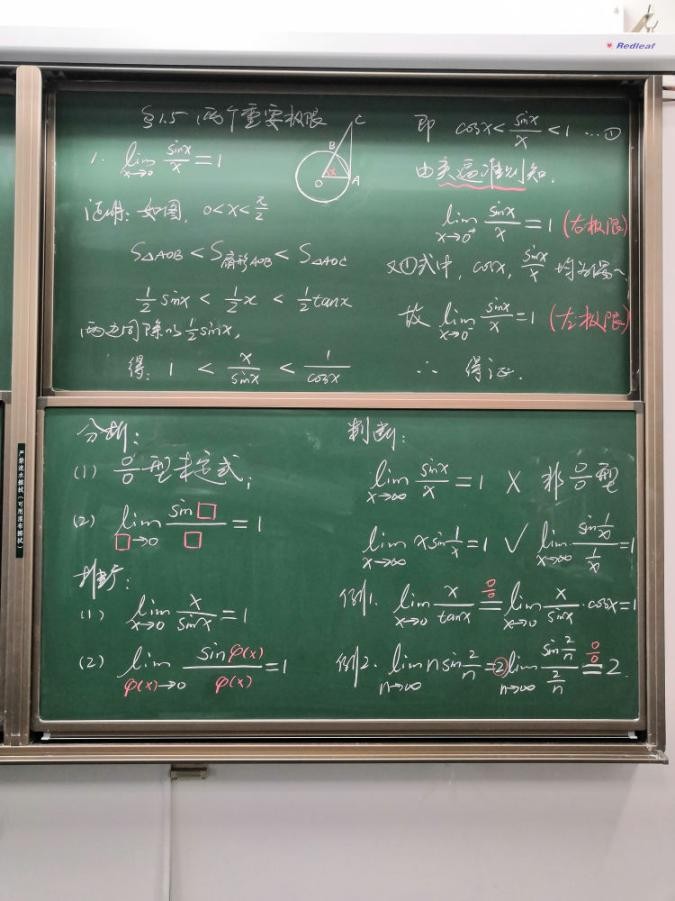 Redleaf
§1.5 两个重要极限
1. lim x→0 sinx/x = 1
C
B
O x A
证明: 如图, 0<x<π/2
S△AOB < S扇形AOB < S△AOC
1/2 sinx < 1/2 x < 1/2 tanx
两边同除以 1/2 sinx,
得: 1 < x/sinx < 1/cosx
即 cosx < sinx/x < 1 …①
由夹逼准则知,
lim x→0⁺ sinx/x = 1 (右极限)
又①式中, cosx, sinx/x 均为偶~,
故 lim x→0⁻ sinx/x = 1 (左极限)
∴ 得证.
严禁湿水擦拭(可用湿布擦拭)
分析:
(1) 0/0型未定式;
(2) lim □→0 sin□/□ = 1
推广:
(1) lim x→0 x/sinx = 1
(2) lim φ(x)→0 sinφ(x)/φ(x) = 1
判断:
lim x→∞ sinx/x = 1 × 非0/0型
lim x→∞ x sin1/x = 1 ✓ lim x→∞ sin1/x / 1/x = 1
例1. lim x→0 x/tanx = 0/0 lim x→0 x/sinx · cosx = 1
例2. lim n→∞ n sin2/n = 2 lim n→∞ sin2/n / 2/n = 0/0 2.